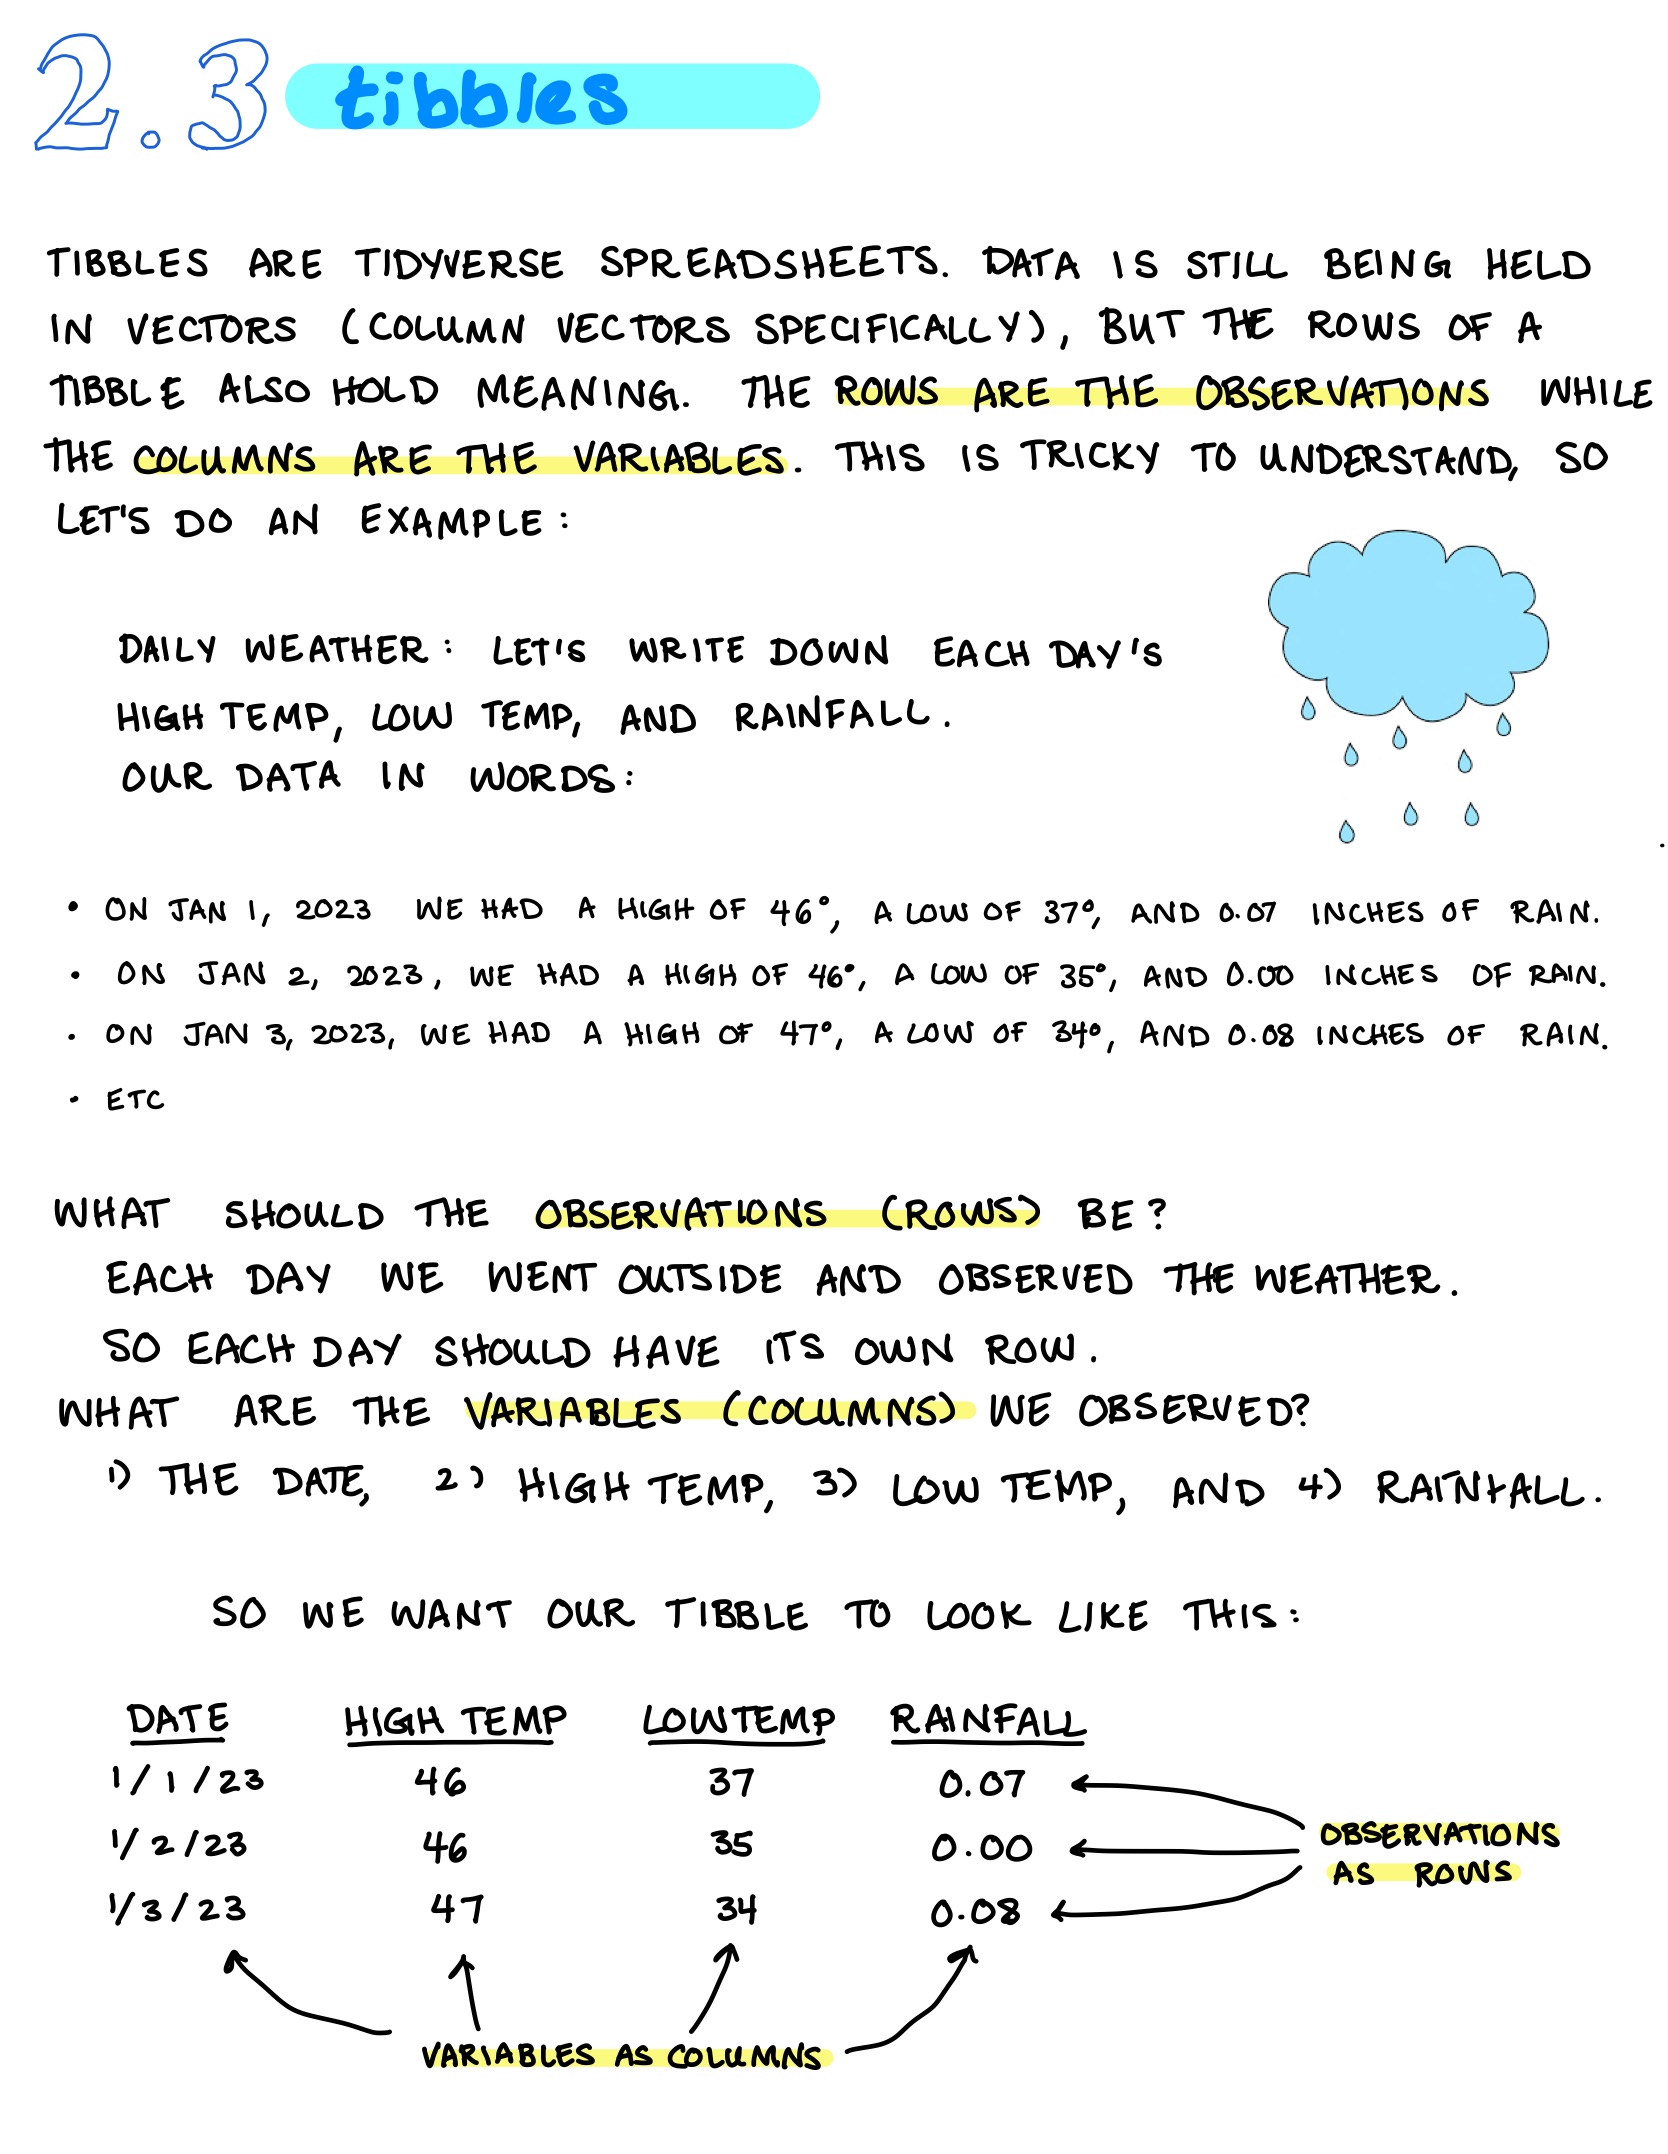 2.3 tibbles
TIBBLES ARE TIDYVERSE SPREADSHEETS. DATA IS STILL BEING HELD
IN VECTORS (COLUMN VECTORS SPECIFICALLY), BUT THE ROWS OF A
TIBBLE ALSO HOLD MEANING. THE ROWS ARE THE OBSERVATIONS WHILE
THE COLUMNS ARE THE VARIABLES. THIS IS TRICKY TO UNDERSTAND, SO
LET'S DO AN EXAMPLE:
DAILY WEATHER: LET'S WRITE DOWN EACH DAY'S
HIGH TEMP, LOW TEMP, AND RAINFALL.
OUR DATA IN WORDS:
• ON JAN 1, 2023 WE HAD A HIGH OF 46°, A LOW OF 37°, AND 0.07 INCHES OF RAIN.
• ON JAN 2, 2023, WE HAD A HIGH OF 46°, A LOW OF 35°, AND 0.00 INCHES OF RAIN.
• ON JAN 3, 2023, WE HAD A HIGH OF 47°, A LOW OF 34°, AND 0.08 INCHES OF RAIN.
• ETC
WHAT SHOULD THE OBSERVATIONS (ROWS) BE?
EACH DAY WE WENT OUTSIDE AND OBSERVED THE WEATHER.
SO EACH DAY SHOULD HAVE ITS OWN ROW.
WHAT ARE THE VARIABLES (COLUMNS) WE OBSERVED?
1) THE DATE, 2) HIGH TEMP, 3) LOW TEMP, AND 4) RAINFALL.
SO WE WANT OUR TIBBLE TO LOOK LIKE THIS:
DATE HIGH TEMP LOWTEMP RAINFALL
1/1/23 46 37 0.07
1/2/23 46 35 0.00
1/3/23 47 34 0.08
OBSERVATIONS
AS ROWS
VARIABLES AS COLUMNS